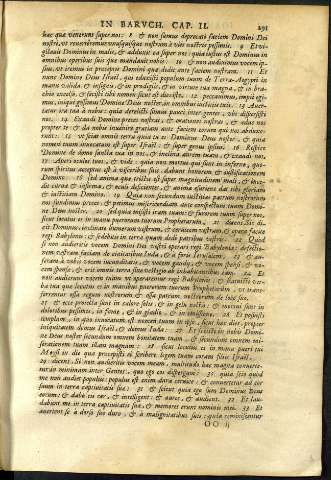 IN BARVCH. CAP. II. 291
hæc quæ venerunt super nos: 8 & non sumus deprecati faciem Domini Dei
nostri, ut reverteremur unusquisque nostrum à viis nostris pessimis. 9 Et vi-
gilavit Dominus in malis, & adduxit ea super nos: quia justus est Dominus in
omnibus operibus suis quæ mandavit nobis: 10 & non audivimus vocem ip-
sius, ut iremus in præceptis Domini quæ dedit ante faciem nostram. 11 Et
nunc Domine Deus Israël, qui eduxisti populum tuum de Terra Ægypti in
manu valida & in signis, & in prodigiis, & in virtute tua magna, & in bra-
chio excelso, & fecisti tibi nomen sicut est dies iste, 12 peccavimus, impiè egi-
mus, iniquè gessimus Domine Deus noster, in omnibus justitiis tuis. 13 Aver-
tatur ira tua à nobis: quia derelicti sumus pauci inter gentes, ubi dispersisti
nos. 14 Exaudi Domine preces nostras, & orationes nostras, & educ nos
propter te & da nobis invenire gratiam ante faciem eorum qui nos abduxe-
runt: 15 ut sciat omnis terra quia tu es Dominus Deus noster, & quia
nomen tuum invocatum est super Israël, & super genus ipsius. 16 Respice
Domine de domo sancta tua in nos, & inclina aurem tuam, & exaudi nos.
17 Aperi oculos tuos, & vide: quia non mortui qui sunt in inferno, quo-
rum spiritus acceptus est à visceribus suis, dabunt honorem & justificationem
Domino: 18 sed anima quæ tristis est super magnitudinem mali, & ince-
dit curva & infirma, & oculi deficientes, & anima esuriens dat tibi gloriam
& justitiam Domino. 19 Quia non secundum justitias patrum nostrorum
nos fundimus preces, & petimus misericordiam ante conspectum tuum Domi-
ne Deus noster: 20 sed quia misisti iram tuam, & furorem tuum super nos,
sicut locutus es in manu puerorum tuorum Prophetarum, 21 dicens: Sic di-
cit Dominus: inclinate humerum vestrum, & cervicem vestram, & opera facite
regi Babylonis: & sedebitis in terra quam dedi patribus vestris. 22 Quod
si non audieritis vocem Domini Dei vestri operari regi Babyloniæ: defectio-
nem vestram faciam de civitatibus Iuda, & à foris Ierusalem, 23 & au-
feram à vobis vocem jucunditatis, & vocem gaudii, & vocem sponsi, & vo-
cem sponsæ, & erit omnis terra sine vestigio ab inhabitantibus eam. 24 Et
non audierunt vocem tuam ut operarentur regi Babylonis, & statuisti ver-
ba tua quæ locutus es in manibus puerorum tuorum Prophetarum, ut trans-
ferrentur ossa regum nostrorum & ossa patrum nostrorum de loco suo,
25 & ecce projecta sunt in calore solis, & in gelu noctis: & mortui sunt in
doloribus pessimis, in fame, & in gladio, & in emissione. 26 Et posuisti
templum, in quo invocatum est nomen tuum in ipso, sicut hæc dies, propter
iniquitatem domus Israël, & domus Iuda: 27 Et fecisti in nobis Domi-
ne Deus noster secundum omnem bonitatem tuam, & secundum omnem mi-
serationem tuam illam magnam: 28 sicut locutus es in manu pueri tui
Moysi in die qua præcepisti ei scribere legem tuam coram filiis Israël,
29 dicens: Si non audieritis vocem meam, multitudo hæc magna converte-
tur in minimam inter Gentes, quo ego eos dispergam: 30 quia scio quod
me non audiet populus: populus est enim dura cervice, & convertetur ad cor
suum in terra captivitatis suæ: 31 & scient quia ego sum Dominus Deus
eorum: & dabo eis cor, & intelligent: & aures, & audient. 32 Et lau-
dabunt me in terra captivitatis suæ, & memores erunt nominis mei. 33 Et
avertent se à dorso suo duro, & à malignitatibus suis: quia reminiscentur
OO ij